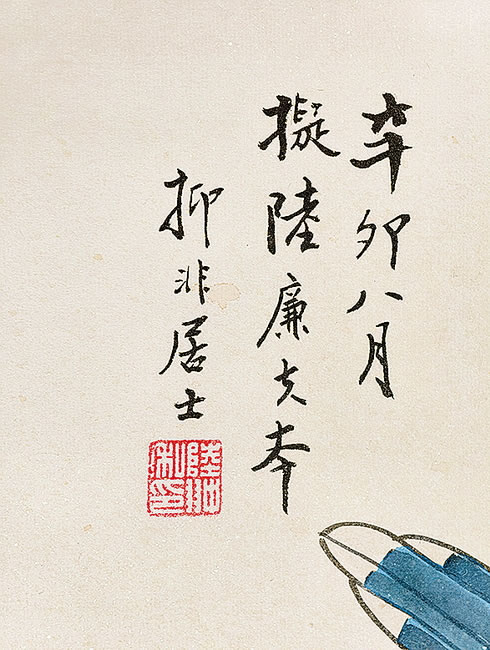 辛卯八月
擬陸廉夫本
抑非居士
陸
私印